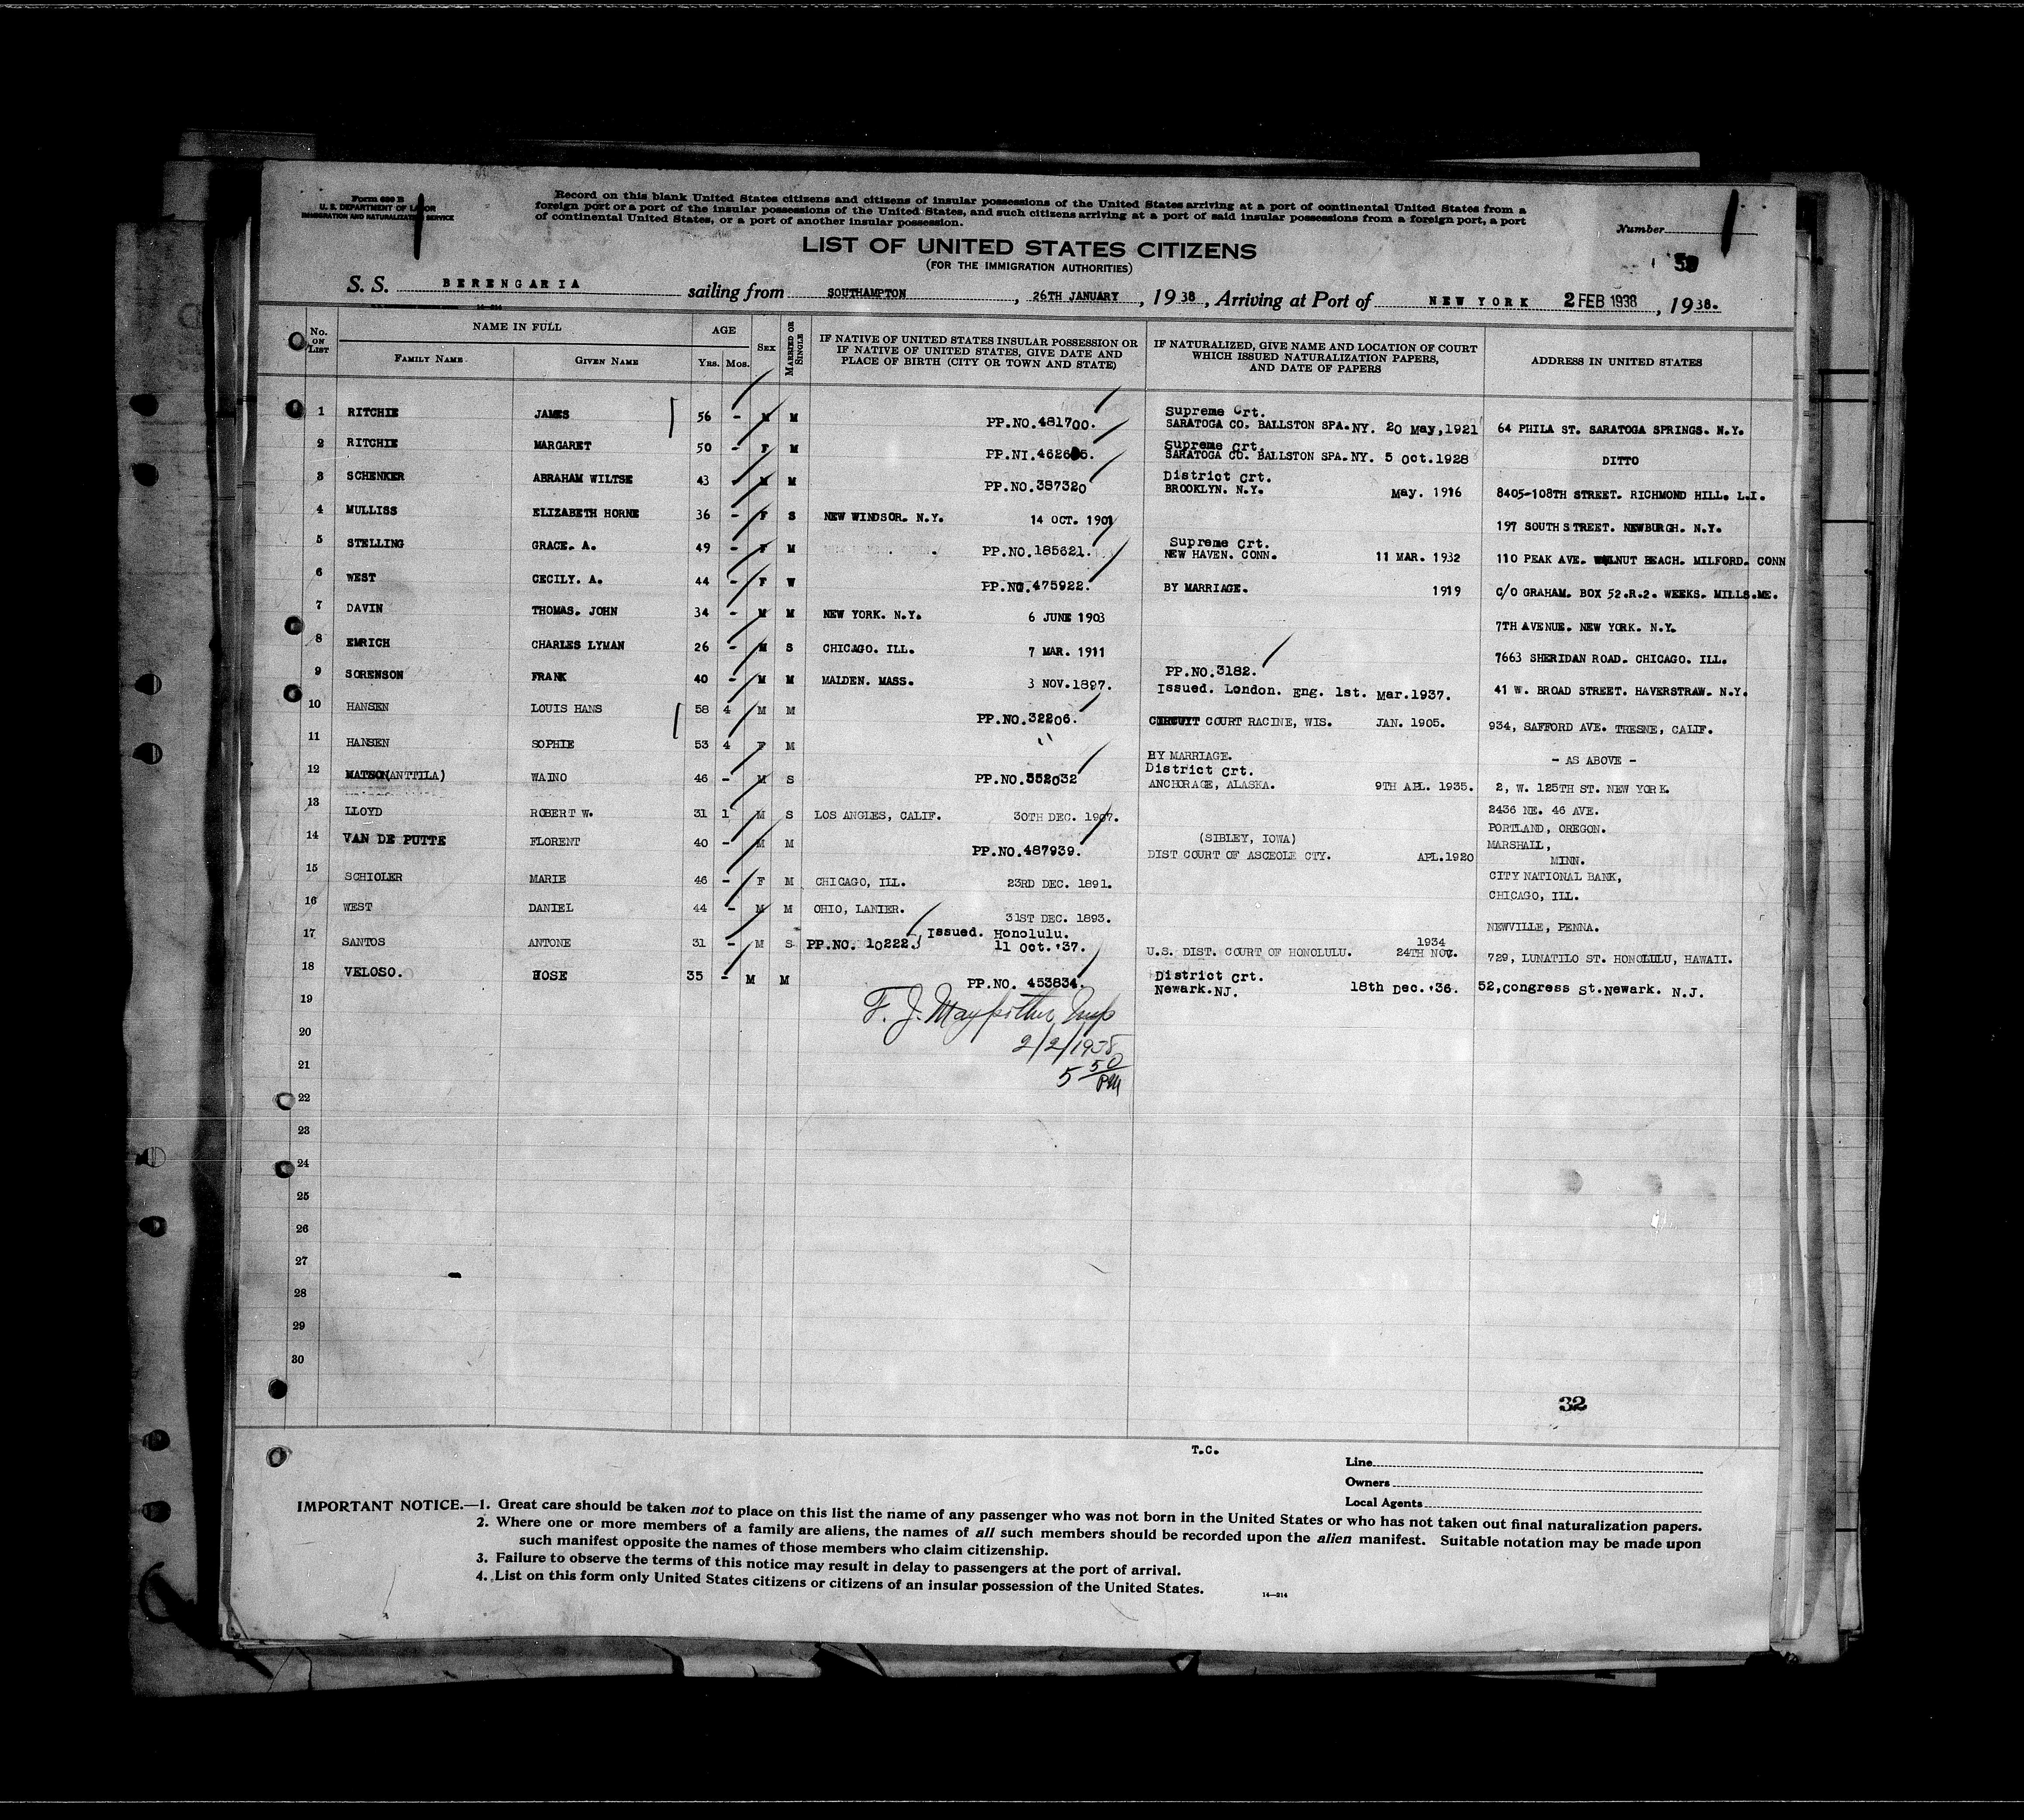 Form 630 B
U. S. DEPARTMENT OF LABOR
IMMIGRATION AND NATURALIZATION SERVICE
Record on this blank United States citizens and citizens of insular possessions of the United States arriving at a port of continental United States from a
foreign port or a port of the insular possessions of the United States, and such citizens arriving at a port of said insular possessions from a foreign port, a port
of continental United States, or a port of another insular possession.
Number
LIST OF UNITED STATES CITIZENS
(FOR THE IMMIGRATION AUTHORITIES)
S. S. BERENGARIA sailing from SOUTHAMPTON, 26TH JANUARY, 1938, Arriving at Port of NEW YORK 2 FEB 1938, 1938.
14-214
No. ON LIST NAME IN FULL FAMILY NAME GIVEN NAME AGE Yrs. Mos. SEX MARRIED OR SINGLE IF NATIVE OF UNITED STATES INSULAR POSSESSION OR IF NATIVE OF UNITED STATES, GIVE DATE AND PLACE OF BIRTH (CITY OR TOWN AND STATE) IF NATURALIZED, GIVE NAME AND LOCATION OF COURT WHICH ISSUED NATURALIZATION PAPERS, AND DATE OF PAPERS ADDRESS IN UNITED STATES
1 RITCHIE JAMES 56 - M M PP.NO.481700. Supreme Crt. SARATOGA CO. BALLSTON SPA.NY. 20 May,1921 64 PHILA ST. SARATOGA SPRINGS. N.Y.
2 RITCHIE MARGARET 50 - F M PP.NI. Supreme Crt. SARATOGA CO. BALLSTON SPA.NY. 5 Oct.1928 DITTO
3 SCHENKER ABRAHAM WILTSE 43 M M PP.NO.387320 District Crt. BROOKLYN. N.Y. May. 1916 8405-108TH STREET. RICHMOND HILL. L.I.
4 MULLISS ELIZABETH HORNE 36 - F S NEW WINDSOR. N.Y. 14 OCT. 1901 197 SOUTH STREET. NEWBURGH. N.Y.
5 STELLING GRACE. A. 49 - F M PP.NO.185621. Supreme Crt. NEW HAVEN. CONN. 11 MAR. 1932 110 PEAK AVE. WALNUT BEACH. MILFORD. CONN
6 WEST CECILY. A. 44 - F W PP.NO.475922. BY MARRIAGE. 1919 C/O GRAHAM. BOX 52.R.2. WEEKS. MILLS.ME.
7 DAVIN THOMAS. JOHN 34 - M M NEW YORK. N.Y. 6 JUNE 1903 7TH AVENUE. NEW YORK. N.Y.
8 EMRICH CHARLES LYMAN 26 - M S CHICAGO. ILL. 7 MAR. 1911 7663 SHERIDAN ROAD. CHICAGO. ILL.
9 SORENSON FRANK 40 - M M MALDEN. MASS. 3 NOV.1897. PP.NO.3182. Issued. London. Eng. 1st. Mar.1937. 41 W. BROAD STREET. HAVERSTRAW. N.Y.
10 HANSEN LOUIS HANS 58 4 M M PP.NO.32206. CIRCUIT COURT RACINE, WIS. JAN. 1905. 934, SAFFORD AVE. TRESNE, CALIF.
11 HANSEN SOPHIE 53 4 F M " BY MARRIAGE. - AS ABOVE -
12 MATSON(ANTTILA) WAINO 46 - M S PP.NO.352032 District Crt. ANCHORAGE, ALASKA. 9TH APL. 1935. 2, W. 125TH ST. NEW YORK.
13 LLOYD ROBERT W. 31 1 M S LOS ANGLES, CALIF. 30TH DEC. 1907. 2436 NE. 46 AVE. PORTLAND, OREGON.
14 VAN DE PUTTE FLORENT 40 - M M PP.NO.487939. (SIBLEY, IOWA) DIST COURT OF ASCEOLE CTY. APL.1920 MARSHALL, MINN.
15 SCHIOLER MARIE 46 - F M CHICAGO, ILL. 23RD DEC. 1891. CITY NATIONAL BANK, CHICAGO, ILL.
16 WEST DANIEL 44 - M M OHIO, LANIER. 31ST DEC. 1893. NEWVILLE, PENNA.
17 SANTOS ANTONE 31 - M S PP.NO. 10222. Issued. Honolulu. 11 Oct.'37. U.S. DIST. COURT OF HONOLULU. 1934 24TH NOV. 729, LUNATILO ST. HONOLULU, HAWAII.
18 VELOSO. HOSE 35 - M M PP.NO. 453834. District Crt. Newark.NJ. 18th Dec.'36. 52,Congress St.Newark. N.J.
19
F. J. Insp
20
2/2/1938
21
5 50 PM
22
23
24
25
26
27
28
29
30
32
T.C.
Line
Owners
Local Agents
IMPORTANT NOTICE.—1. Great care should be taken not to place on this list the name of any passenger who was not born in the United States or who has not taken out final naturalization papers.
2. Where one or more members of a family are aliens, the names of all such members should be recorded upon the alien manifest. Suitable notation may be made upon
such manifest opposite the names of those members who claim citizenship.
3. Failure to observe the terms of this notice may result in delay to passengers at the port of arrival.
4. List on this form only United States citizens or citizens of an insular possession of the United States.
14-214